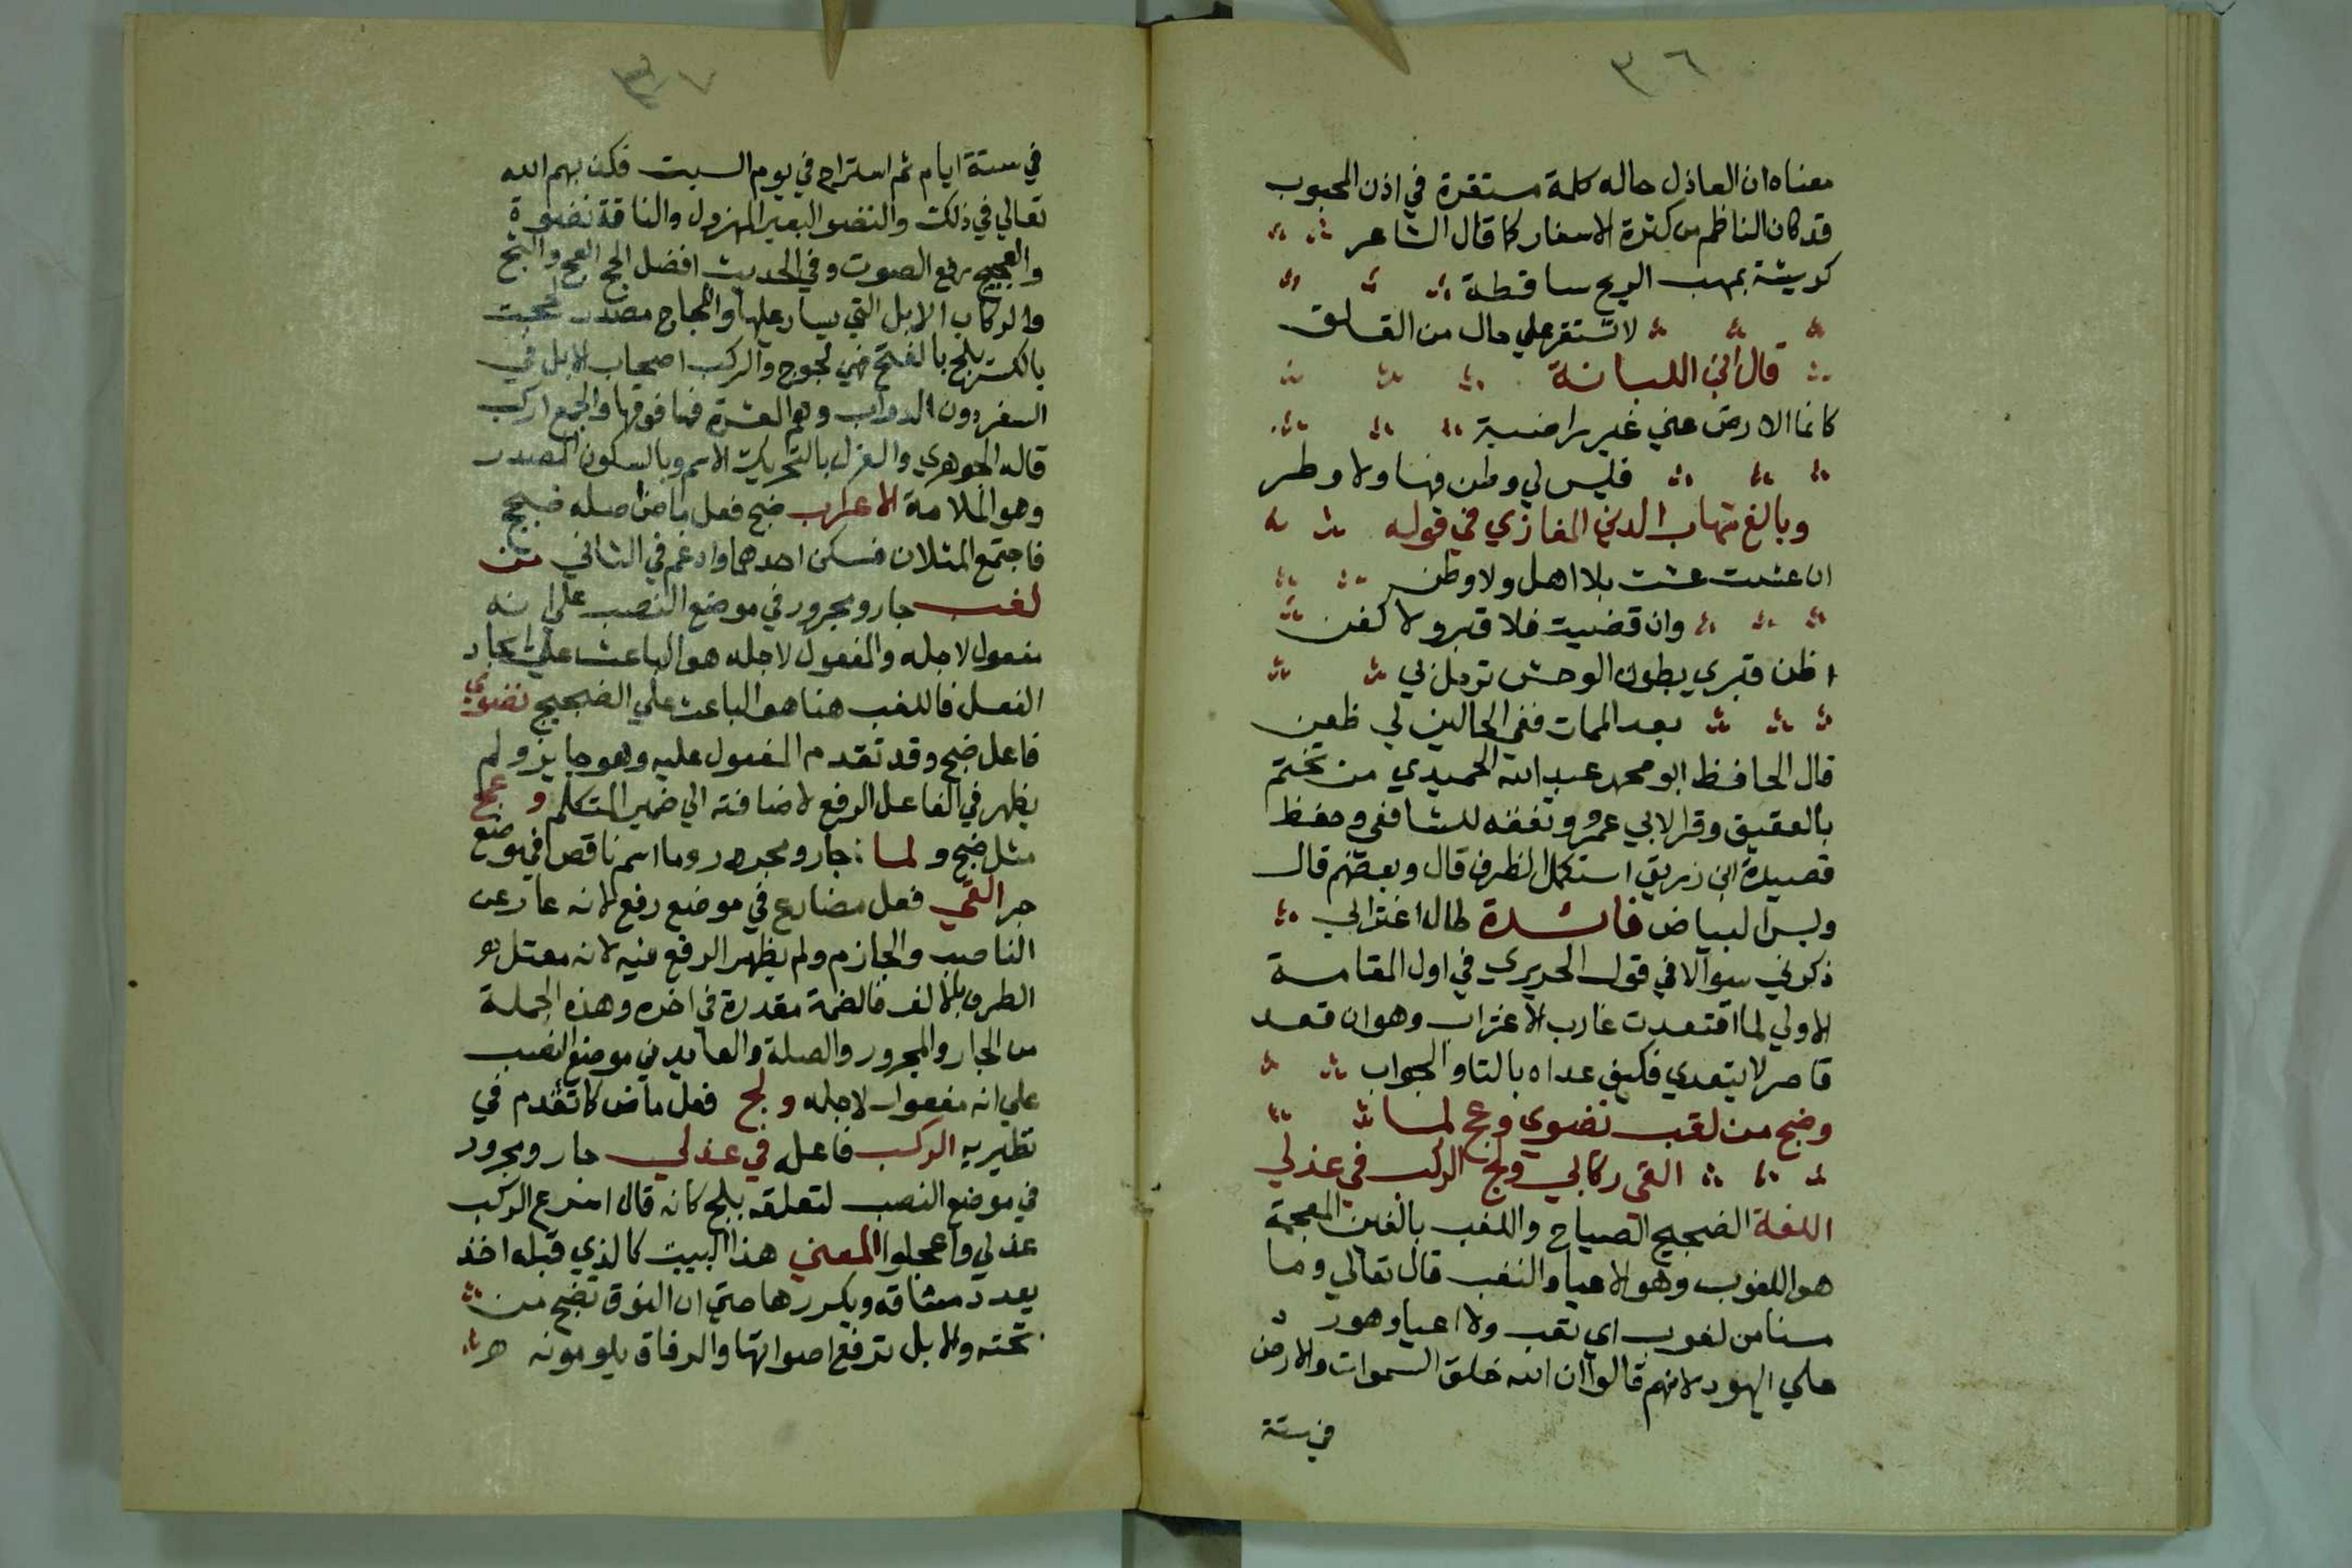 ٣٦
معناه ان العاذل حاله كلمة مستقرة في اذن المحبوب
قد كان الناظم من كثرة الاسفار كما قال الشاعر
كريشة بمهب الريح ساقطة
لا تستقر علي حال من القلق
قال ابن اللبانة
كانما الارض عني غير راضية
فليس لي وطن فيها ولا وطر
وبالغ شهاب الدين المغازي في قوله
ان عشت عشت بلا اهل ولا وطن
وان قضيت فلا قبر ولا كفن
اظن قبري بطون الوحش ترمل بي
بعد الممات ففي الحالين لي ظعن
قال الحافظ ابو محمد عبد الله الحميدي من تختم
بالعقيق وقرا لابي عمرو وتفقه للشافعي وحفظ
قصيدة ابن زريق استكمل الظرف قال وبعضهم قال
ولبس البياض فائدة طال اغترابي
ذكروني سوالا في قول الحريري في اول المقامة
الاولي لما اقتعدت غارب الاغتراب وهو ان قعد
قاصر لا يتعدي فكيف عداه بالتا والجواب
وضج من لغب نضوي وعج لما
القي ركابي ولج الركب في عذلي
اللغة الضجيج الصياح واللغب بالغين المعجمة
هو اللغوب وهو الاعيا والتعب قال تعالي وما
مسنا من لغوب اي تعب ولا اعيا وهو رد
علي اليهود لانهم قالوا ان الله خلق السموات والارض
في ستة
٣٧
في ستة ايام ثم استراح في يوم السبت فكذبهم الله
تعالي في ذلك والنضو البعير المهزول والناقة نضوة
والعجيج رفع الصوت وفي الحديث افضل الحج العج والثج
والركاب الابل التي يسار عليها واللجاج مصدر لججت
بالكسر يلج بالفتح فهي لجوج والركب اصحاب الابل في
السفر دون الدواب وهم العشرة فما فوقها والجمع اركب
قاله الجوهري والعذل بالتحريك الاسم وبالسكون المصدر
وهو الملامة الاعراب ضج فعل ماض اصله ضجج
فاجتمع المثلان فسكن احدهما وادغم في الثاني من
لغب جار ومجرور في موضع النصب علي انه
مفعول لاجله والمفعول لاجله هو الباعث علي ايجاد
الفعل فاللغب هنا هو الباعث علي الضجيج نضوي
فاعل ضج وقد تقدم المفعول عليه وهو جايز ولم
يظهر في الفاعل الرفع لاضافته الي ضمير المتكلم وعج
مثل ضج ولما جار ومجرور وما اسم ناقص في موضع
جر القي فعل مضارع في موضع رفع لانه عار عن
الناصب والجازم ولم يظهر الرفع فيه لانه معتل
الطرف بالالف فالضمة مقدرة في اخره وهذه الجملة
من الجار والمجرور والصلة والعايد في موضع النصب
علي انه مفعول لاجله ولج فعل ماض كما تقدم في
نظيريه الركب فاعله في عذلي جار ومجرور
في موضع النصب لتعلقه بلج كانه قال اسرع الركب
عذلي واعجلوا المعني هذا البيت كالذي قبله اخذ
يعدد مشاقه ويكررها حتي ان النوق تضج من
تحته والابل ترفع اصواتها والرفاق يلومونه